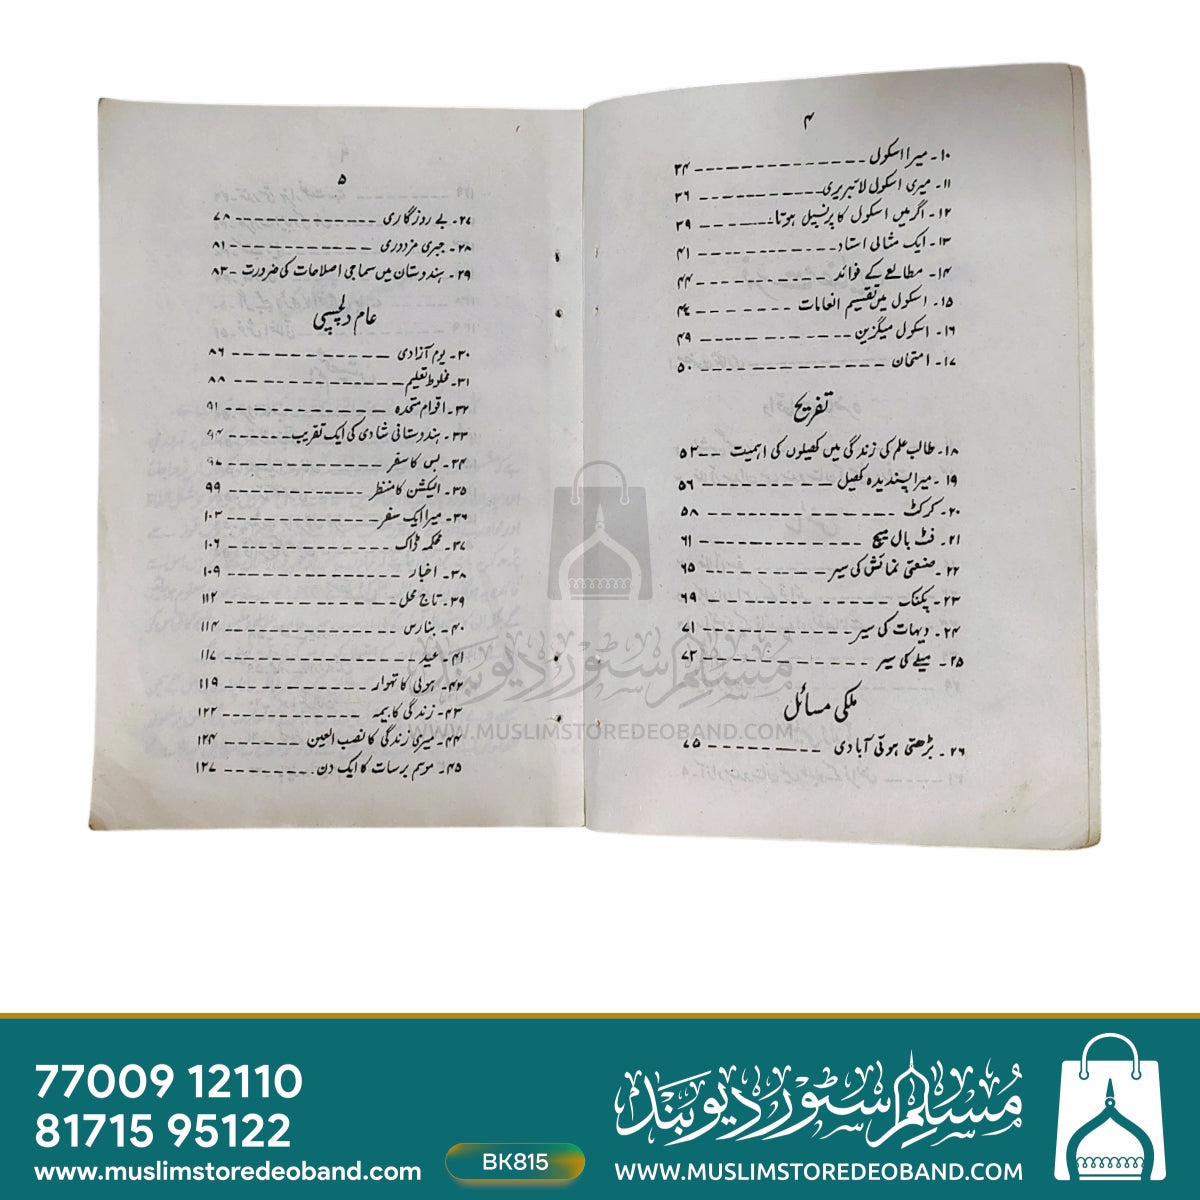 ۴
۱۰۔ میرا اسکول ۳۴
۱۱۔ میری اسکول لائبریری ۳۶
۱۲۔ اگر میں اسکول کا پرنسپل ہوتا ۳۹
۱۳۔ ایک مثالی استاد ۴۱
۱۴۔ مطالعے کے فوائد ۴۴
۱۵۔ اسکول میں تقسیم انعامات ۴۶
۱۶۔ اسکول میگزین ۴۹
۱۷۔ امتحان ۵۰
تفریح
۱۸۔ طالب علم کی زندگی میں کھیلوں کی اہمیت ۵۳
۱۹۔ میرا پسندیدہ کھیل ۵۶
۲۰۔ کرکٹ ۵۸
۲۱۔ فٹ بال میچ ۶۱
۲۲۔ صنعتی نمائش کی سیر ۶۵
۲۳۔ پکنک ۶۹
۲۴۔ دیہات کی سیر ۷۱
۲۵۔ میلے کی سیر ۷۳
ملکی مسائل
۲۶۔ بڑھتی ہوئی آبادی ۷۵
۵
۲۷۔ بے روزگاری ۷۸
۲۸۔ جبری مزدوری ۸۱
۲۹۔ ہندوستان میں سماجی اصلاحات کی ضرورت ۸۳
عام دلچسپی
۳۰۔ یوم آزادی ۸۶
۳۱۔ مخلوط تعلیم ۸۸
۳۲۔ اقوام متحدہ ۹۱
۳۳۔ ہندوستانی شادی کی ایک تقریب ۹۴
۳۴۔ بس کا سفر ۹۷
۳۵۔ الیکشن کا منظر ۹۹
۳۶۔ میرا ایک سفر ۱۰۳
۳۷۔ محکمہ ڈاک ۱۰۶
۳۸۔ اخبار ۱۰۹
۳۹۔ تاج محل ۱۱۲
۴۰۔ بنارس ۱۱۴
۴۱۔ عید ۱۱۷
۴۲۔ ہولی کا تہوار ۱۱۹
۴۳۔ زندگی کا بیمہ ۱۲۲
۴۴۔ میری زندگی کا نصب العین ۱۲۴
۴۵۔ موسم برسات کا ایک دن ۱۲۷
مسلم سٹور دیوبند
WWW.MUSLIMSTOREDEOBAND.COM
77009 12110
81715 95122
www.muslimstoredeoband.com
BK815
مسلم سٹور دیوبند
WWW.MUSLIMSTOREDEOBAND.COM